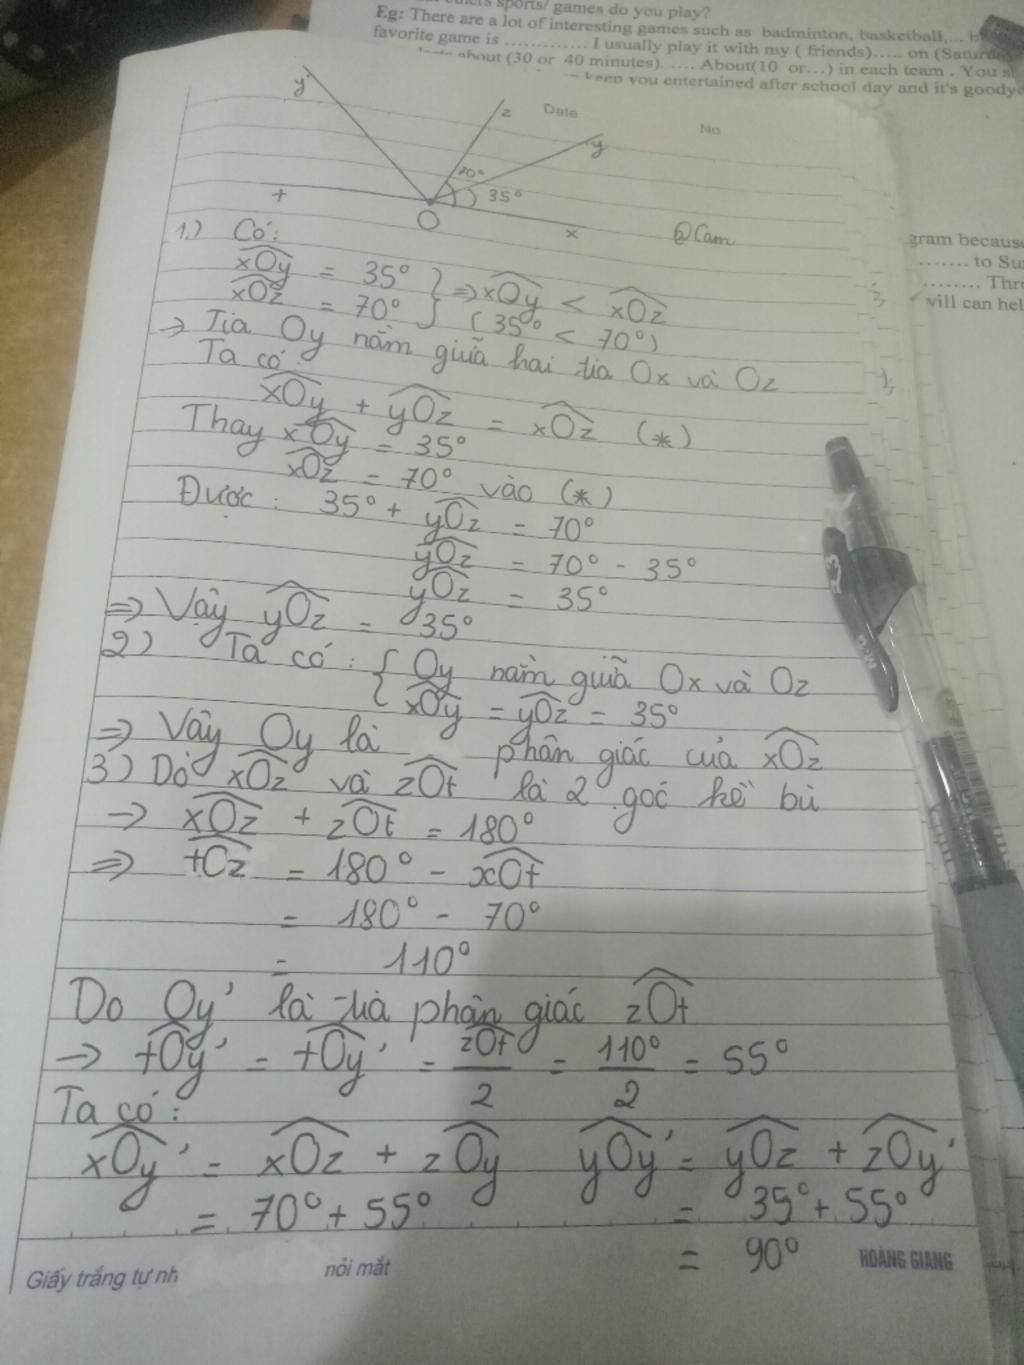 sports/ games do you play?
Eg: There are a lot of interesting games such as badminton, basketball,...
favorite game is ............. I usually play it with my ( friends)..... on (Satur
about (30 or 40 minutes). .... About(10 or...) in each team . You
keep you entertained after school day and it's goodye
y'
z
Date
No
y
70°
35°
t
O
x
@Cam
gram because
....... to Su
........ Thr
will can hel
1.) Có:
xOy = 35° } ⇒ xOy < xOz
xOz = 70° } (35° < 70°)
→ Tia Oy nằm giữa hai tia Ox và Oz
Ta có:
xOy + yOz = xOz (*)
Thay xOy = 35°
xOz = 70° vào (*)
Được: 35° + yOz = 70°
yOz = 70° - 35°
yOz = 35°
⇒ Vậy yOz = 35°
2) Ta có : { Oy nằm giữa Ox và Oz
{ xOy = yOz = 35°
⇒ Vậy Oy là phân giác của xOz
3) Do xOz và zOt là 2 góc kề bù
→ xOz + zOt = 180°
⇒ tOz = 180° - xOt
= 180° - 70°
= 110°
Do Oy' là tia phân giác zOt
→ tOy' = tOy' = zOt/2 = 110°/2 = 55°
Ta có :
xOy' = xOz + zOy yOy' = yOz + zOy'
= 70° + 55° = 35° + 55°
= 90°
Giấy trắng tự nh nỏi mắt HOÀNG GIANG